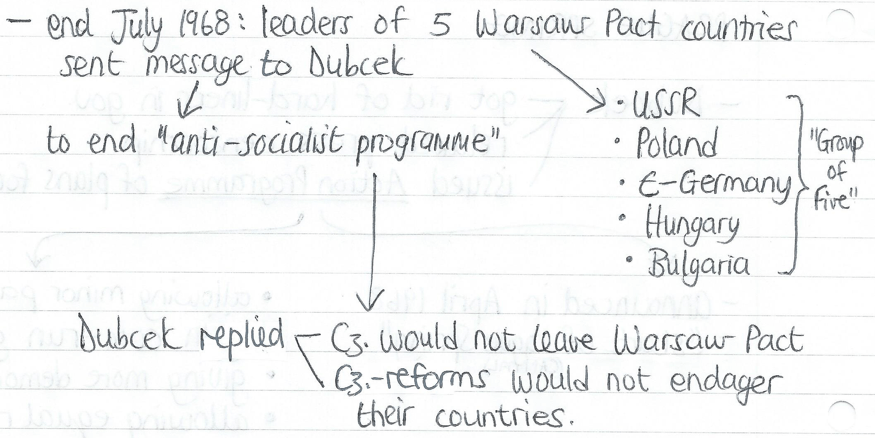 – end July 1968: leaders of 5 Warsaw Pact countries
sent message to Dubcek
to end "anti-socialist programme"
• USSR
• Poland
• E-Germany
• Hungary
• Bulgaria
"Group
of
Five"
Dubcek replied – Cz. would not leave Warsaw Pact
Cz.-reforms would not endager
their countries.